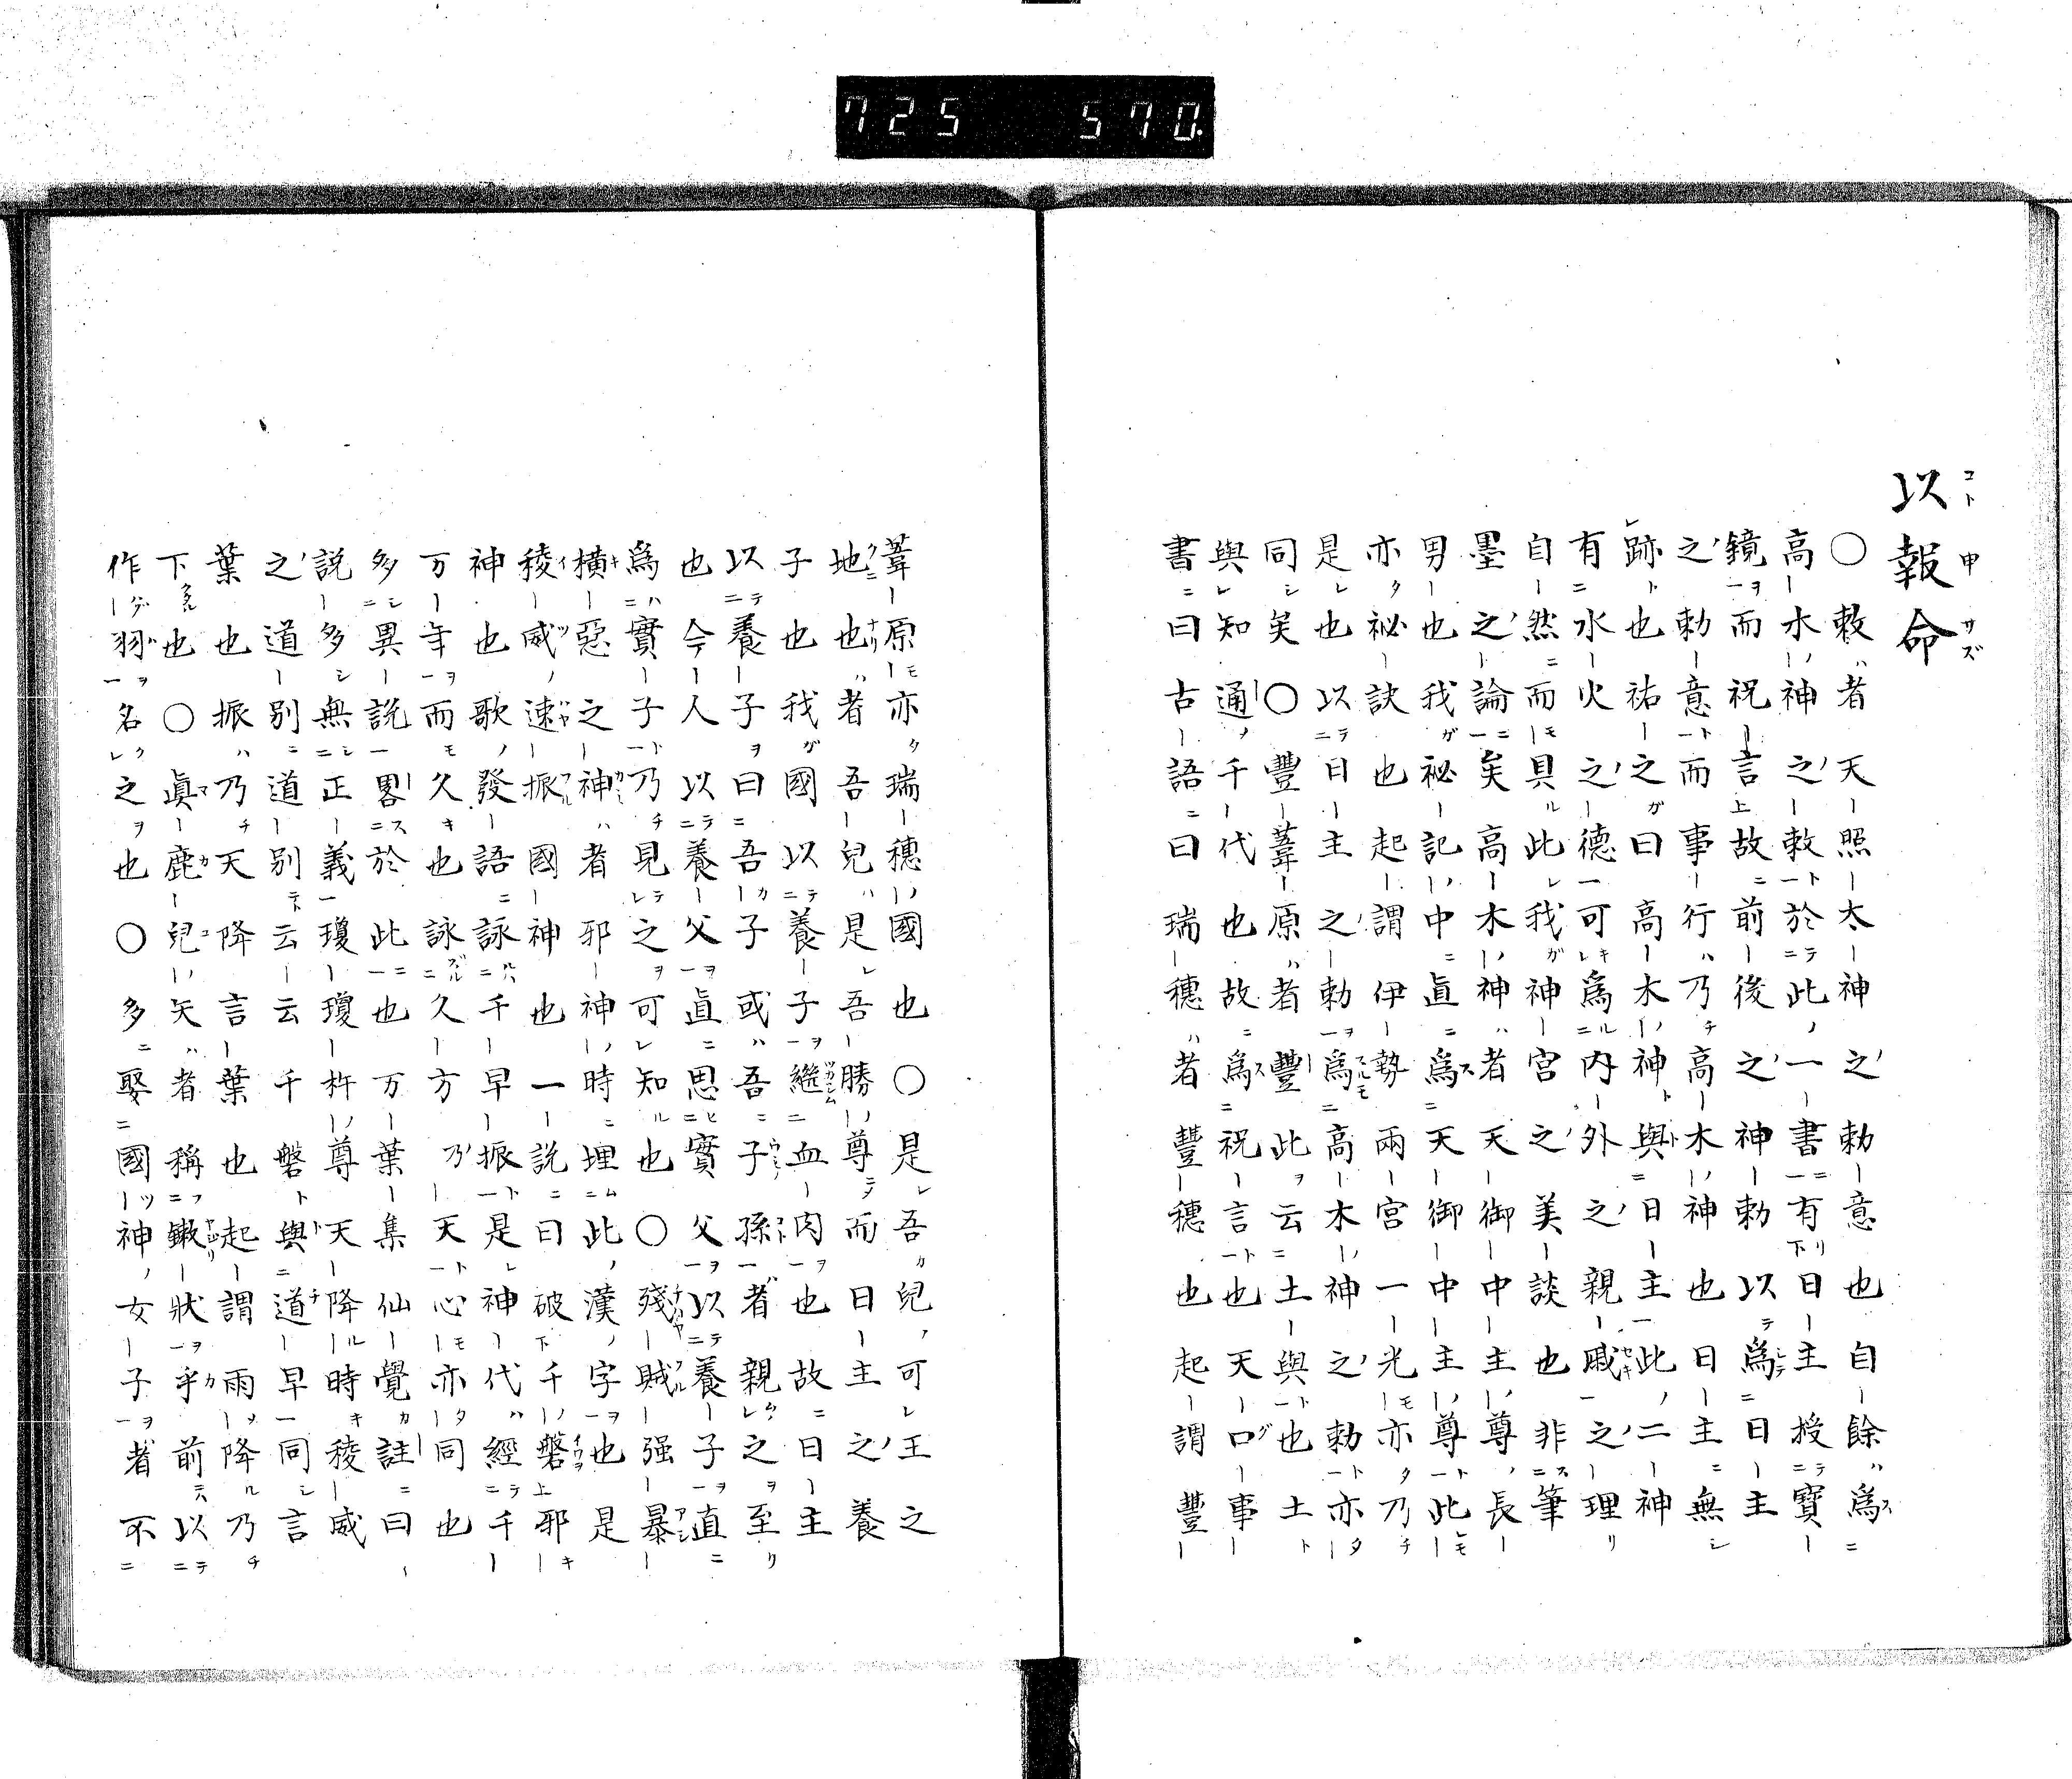 以報命
○敕者天照太神之勅意也自餘爲
高木神之敕於此一書有日主授寶
鏡而祝言故前後之神勅以爲日主
之勅意而事行乃高木神也日主無
跡也祐之曰高木神與日主此二神
有水火之德可爲内外之親戚之理
自然而具此我神宮之美談也非筆
墨之論矣高木神者天御中主尊長
男也我祕記中眞爲天御中主尊此
亦祕訣也起謂伊勢兩宮一光亦乃
是也以日主之勅爲高木神之勅亦
同矣○豐葦原者豐此云土與也土
與知通千代也故爲祝言也天口事
書曰古語曰瑞穗者豐穗也起謂豐
葦原亦瑞穗國也○是吾兒可王之
地也者吾兒是吾勝尊而日主之養
子也我國以養子繼血肉也故日主
以養子曰吾子或吾子孫者親之至
也今人以養父眞思實父以養子直
爲實子乃見之可知也○殘賊强暴
横惡之神者邪神時埋此漢字也是
稜威速振國神也一説曰破千磐邪
神也歌發語詠千早振是神代經千
万年而久也詠久方乃天心亦同也
多異説畧於此也万葉集仙覺註曰
説多無正義瓊瓊杵尊天降時稜威
之道別道別云云千磐與道早同言
葉也振乃天降言葉也起謂雨降乃
下也○眞鹿兒矢者稱鏃狀乎前以
作羽名之也○多娶國神女子者不
725 570.